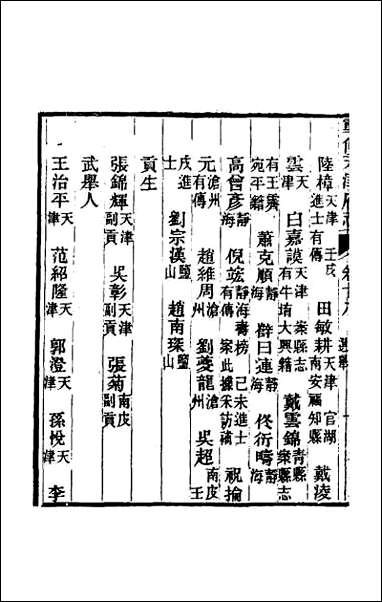 重修天津府志 卷十八 選舉
陸樟天津 壬戌進士有傳 田敏耕天津 官湖南安福知縣 戴凌
雲天津 白嘉謨天津案縣志有牛堉大興籍 戴雲錦青縣案縣志
有王宛平籍 蕭克順靜海 薜曰連靜海 佟衍疇靜海
高曾彥靜海 倪竤靜海 榜 己未進士有傳 案此據采訪稿 祝掄
元滄州有傳 趙維周滄州 劉夔龍滄州 吳超南皮 壬
戌進士 劉宗漢鹽山 趙南琛鹽山
貢生
張錦輝天津副貢 吳彰天津副貢 張菊南皮副貢
武舉人
王治平天津 范紹隆天津 郭澄天津 孫悅天津 李